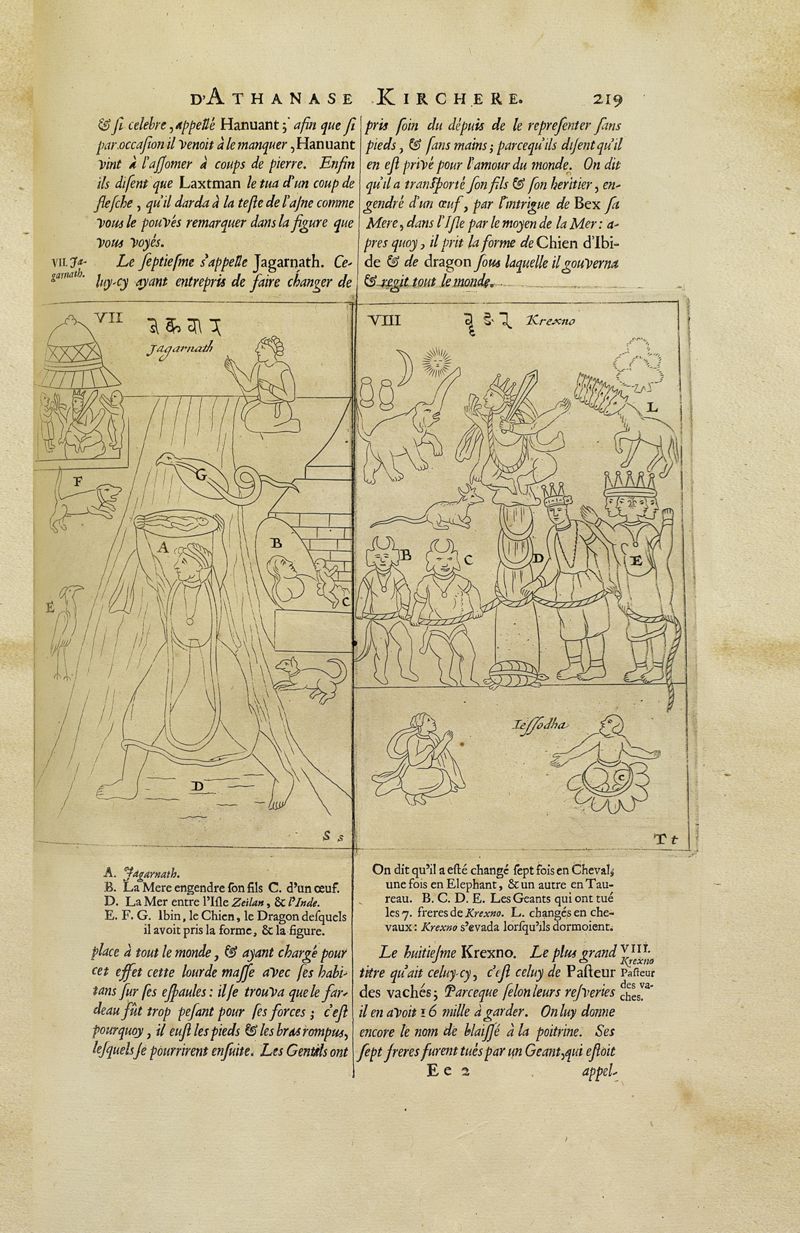 D'ATHANASE KIRCHERE. 219
& si celebre, appellé Hanuant; afin que si
par occasion il venoit à le manquer, Hanuant
vint à l'assomer à coups de pierre. Enfin
ils disent que Laxtman le tua d'un coup de
flesche, qu'il darda à la teste de l'asne comme
vous le pouvés remarquer dans la figure que
vous voyés.
VII. Ja-
garnath.
Le septiesme s'appelle Jagarnath. Ce-
luy-cy ayant entrepris de faire changer de
pris soin du dépuis de le representer sans
pieds, & sans mains; parcequ'ils disent qu'il
en est privé pour l'amour du monde. On dit
qu'il a transporté son fils & son heritier, en-
gendré d'un œuf, par l'intrigue de Bex sa
Mere, dans l'Isle par le moyen de la Mer: a-
pres quoy, il prit la forme de Chien d'Ibi-
de & de dragon sous laquelle il gouverna
& regit tout le monde.
VII
Jagarnath
F
G
A
B
C
E
D
S s
VIII
Krexno
L
B
C
D
E
Iessodha
C
T t
A. Jagarnath.
B. La Mere engendre son fils C. d'un œuf.
D. La Mer entre l'Isle Zeilan, & l'Inde.
E. F. G. Ibin, le Chien, le Dragon desquels
il avoit pris la forme, & la figure.
place à tout le monde, & ayant chargé pour
cet effet cette lourde masse avec ses habi-
tans sur ses espaules: il se trouva que le far-
deau fût trop pesant pour ses forces; c'est
pourquoy, il eust les pieds & les bras rompus,
lesquels se pourrirent ensuite. Les Gentils ont
On dit qu'il a esté changé sept fois en Cheval;
une fois en Elephant, & un autre en Tau-
reau. B. C. D. E. Les Geants qui ont tué
les 7. freres de Krexno. L. changés en che-
vaux: Krexno s'evada lorsqu'ils dormoient.
Le huitiesme Krexno. Le plus grand
titre qu'ait celuy-cy, c'est celuy de Pasteur
des vachés; Parceque selon leurs resveries
il en avoit 16 mille à garder. On luy donne
encore le nom de blaissé à la poitrine. Ses
sept freres furent tués par un Geant, qui estoit
VIII.
Krexno
Pasteur
des va-
ches.
E e 2 appel-